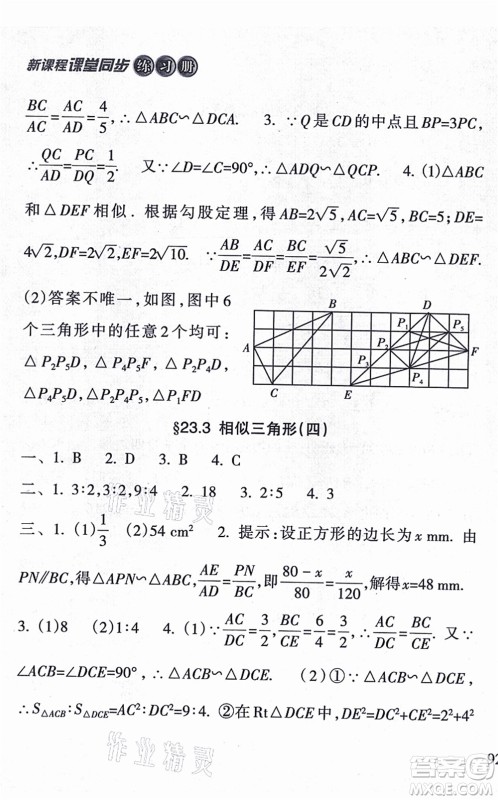 新课程课堂同步练习册
BC/AC=AC/AD=4/5,∴△ABC∽△DCA. 3. ∵Q是CD的中点且BP=3PC,
∴QC/AD=PC/DQ=1/2. 又∵∠D=∠C=90°,∴△ADQ∽△QCP. 4. (1)△ABC
和△DEF相似. 根据勾股定理,得AB=2√5,AC=√5,BC=5;DE=
4√2,DF=2√2,EF=2√10. ∵AB/DE=AC/DF=BC/EF=√5/2√2,∴△ABC∽△DEF.
(2)答案不唯一,如图,图中6
个三角形中的任意2个均可:
△P₂P₅D,△P₄P₅F,△P₂P₄D,
△P₄P₅D,△P₂P₄P₅,△P₁FD
A
B
C
D
E
F
P₁
P₂
P₃
P₄
P₅
§23.3 相似三角形(四)
一、1. B 2. D 3. B 4. C
二、1. 3:2,3:2,9:4 2. 18 3. 2:5 4. 3
三、1. (1)1/3 (2)54 cm² 2. 提示:设正方形的边长为x mm. 由
PN∥BC,得△APN∽△ABC,AE/AD=PN/BC,即80-x/80=x/120,解得x=48 mm.
3. (1)8 (2)1:4 4. (1)∵AC/DC=3/2,BC/CE=6/4=3/2,∴AC/DC=BC/CE. 又∵
∠ACB=∠DCE=90°,∴△ACB∽△DCE. (2)①∵△ACB∽△DCE,
∴S△ACB:S△DCE=AC²:DC²=9:4. ②在Rt△DCE中,DE²=2²+4²
92
作业精灵
作业精灵
答案圈
MXQE.COM